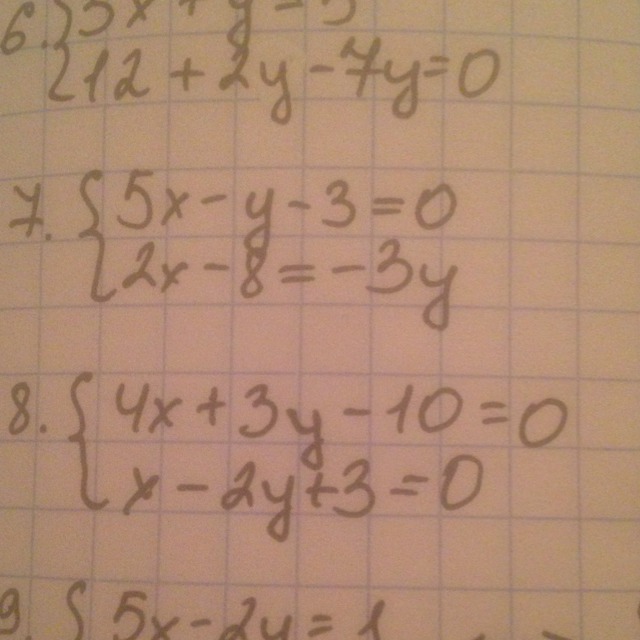 6. { 3x + y = 5
12 + 2y - 7y = 0
7. { 5x - y - 3 = 0
2x - 8 = -3y
8. { 4x + 3y - 10 = 0
x - 2y + 3 = 0
9. { 5x - 2y = 1